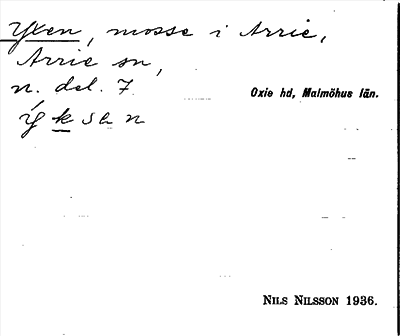 Yxen, mosse i Arrie,
Arrie sn,
n. del. 7
Oxie hd, Malmöhus län.
ýksen
NILS NILSSON 1936.